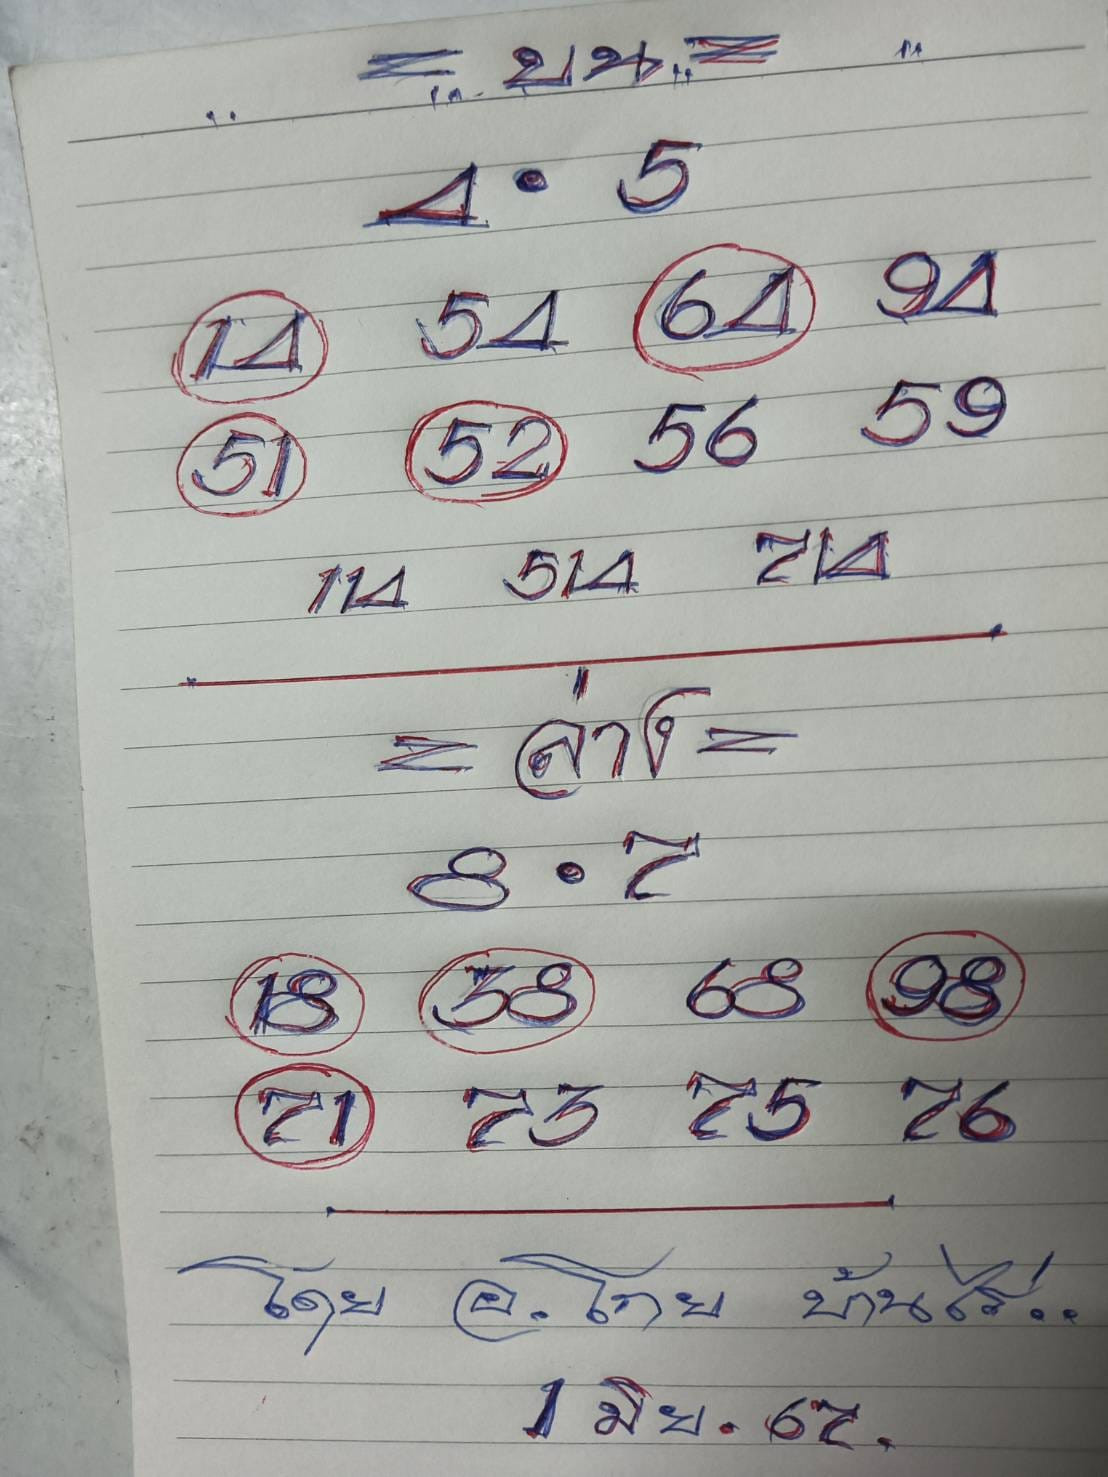 = บน =
4 • 5
14 54 64 94
51 52 56 59
114 514 714
= ล่าง =
8 • 7
18 38 68 98
71 73 75 76
โดย อ. โทย บ้านไร่..
1 มิย. 67.